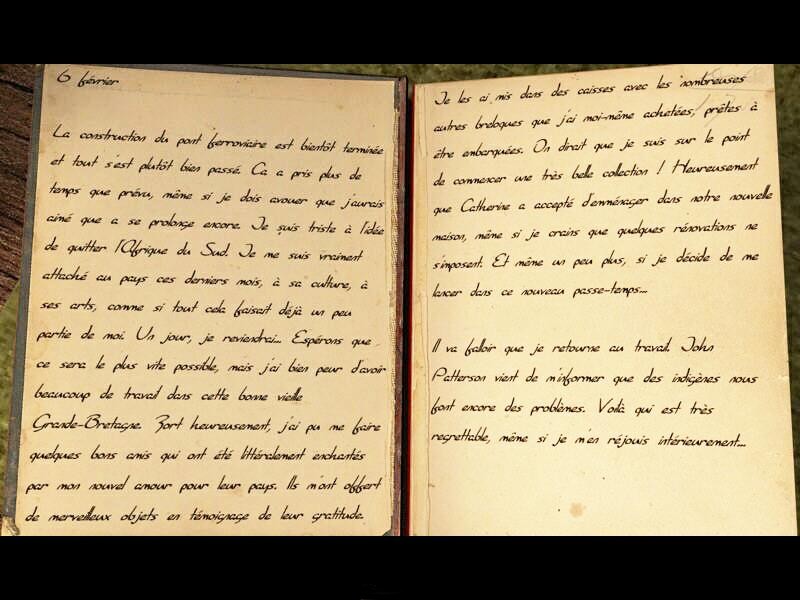 6 février
La construction du pont ferroviaire est bientôt terminée
et tout s'est plutôt bien passé. Ca a pris plus de
temps que prévu, même si je dois avouer que j'aurais
aimé que a se prolonge encore. Je suis triste à l'idée
de quitter l'Afrique du Sud. Je me suis vraiment
attaché au pays ces derniers mois, à sa culture, à
ses arts, comme si tout cela faisait déjà un peu
partie de moi. Un jour, je reviendrai... Espérons que
ce sera le plus vite possible, mais j'ai bien peur d'avoir
beaucoup de travail dans cette bonne vieille
Grande-Bretagne. Fort heureusement, j'ai pu me faire
quelques bons amis qui ont été littéralement enchantés
par mon nouvel amour pour leur pays. Ils m'ont offert
de merveilleux objets en témoignage de leur gratitude.
Je les ai mis dans des caisses avec les nombreuses
autres breloques que j'ai moi-même achetées, prêtes à
être embarquées. On dirait que je suis sur le point
de commencer une très belle collection ! Heureusement
que Catherine a accepté d'emménager dans notre nouvelle
maison, même si je crains que quelques rénovations ne
s'imposent. Et même un peu plus, si je décide de me
lancer dans ce nouveau passe-temps...
Il va falloir que je retourne au travail. John
Patterson vient de m'informer que des indigènes nous
font encore des problèmes. Voilà qui est très
regrettable, même si je m'en réjouis intérieurement...